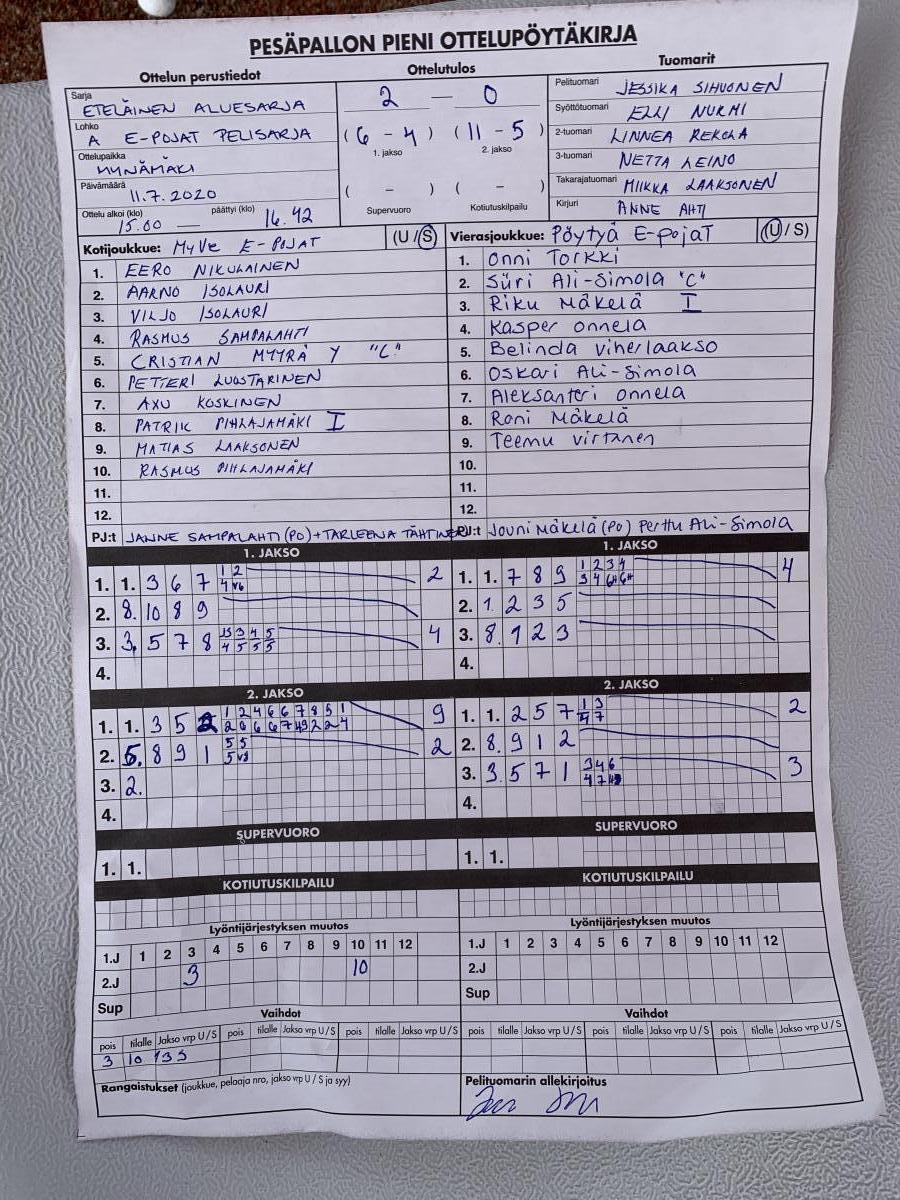 PESÄPALLON PIENI OTTELUPÖYTÄKIRJA
Ottelun perustiedot
Sarja
ETELÄINEN ALUESARJA
Lohko
A E-POJAT PELISARJA
Ottelupaikka
MYNÄMÄKI
Päivämäärä
11.7.2020
Ottelu alkoi (klo) päättyi (klo)
15.00 — 16.42
Ottelutulos
2 — 0
(6 - 4) (11 - 5)
1. jakso 2. jakso
( - ) ( - )
Supervuoro Kotiutuskilpailu
Tuomarit
Pelituomari JESSIKA SIHVONEN
Syöttötuomari ELLI NURMI
2-tuomari LINNEA REKOLA
3-tuomari NETTA LEINO
Takarajatuomari MIIKKA LAAKSONEN
Kirjuri ANNE AHTI
Kotijoukkue: MyVe E-POJAT (U / S)
1. EERO NIKULAINEN
2. AARNO ISOLAURI
3. VILJO ISOLAURI
4. RASMUS SAMPALAHTI
5. CRISTIAN MYYRÄ Y "C"
6. PETTERI LUOSTARINEN
7. AXU KOSKINEN
8. PATRIK PIHLAJAMÄKI I
9. MATIAS LAAKSONEN
10. RASMUS PIHLAJAMÄKI
11.
12.
PJ:t JANNE SAMPALAHTI (PO) + TARLEENA TÄHTINEN
Vierasjoukkue: Pöytyä E-pojaT (U / S)
1. Onni Torkki
2. Süri Ali-Simola "C"
3. Riku Mäkelä I
4. Kasper onnela
5. Belinda viherlaakso
6. Oskari Ali-Simola
7. Aleksanteri onnela
8. Roni Mäkelä
9. Teemu virtanen
10.
11.
12.
PJ:t Jouni Mäkelä (PO) Perttu Ali-Simola
1. JAKSO
1. 1. 3 6 7 1 2 2
2. 8. 10 8 9
3. 3. 5 7 8 4
4.
2. JAKSO
1. 1. 3 5 2 1 2 4 6 6 7 8 5 1 9
2. 5. 8 9 1 5 5 2
3. 2.
4.
SUPERVUORO
1. 1.
KOTIUTUSKILPAILU
1. JAKSO
1. 1. 7 8 9 1 2 3 4 4
2. 1. 2 3 5
3. 8. 1 2 3
4.
2. JAKSO
1. 1. 2 5 7 1 3 2
2. 8. 9 1 2
3. 3. 5 7 1 3 4 6 3
4.
SUPERVUORO
1. 1.
KOTIUTUSKILPAILU
Lyöntijärjestyksen muutos
1.J 1 2 3 4 5 6 7 8 9 10 11 12
2.J 3 10
Sup
Vaihdot
pois tilalle Jakso vrp U / S pois tilalle Jakso vrp U / S pois tilalle Jakso vrp U / S
3 10 1 3 S
Rangaistukset (joukkue, pelaaja nro, jakso vrp U / S ja syy)
Lyöntijärjestyksen muutos
1.J 1 2 3 4 5 6 7 8 9 10 11 12
2.J
Sup
Vaihdot
pois tilalle Jakso vrp U / S pois tilalle Jakso vrp U / S pois tilalle Jakso vrp U / S
Pelituomarin allekirjoitus